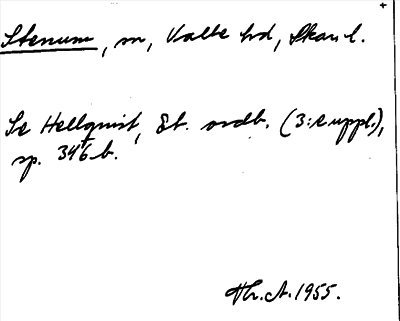 Stenum, sn, Valle hd, Skarl.
Se Hellquist, Et. ordb. (3:e uppl.),
sp. 346 b.
Hr. A. 1955.